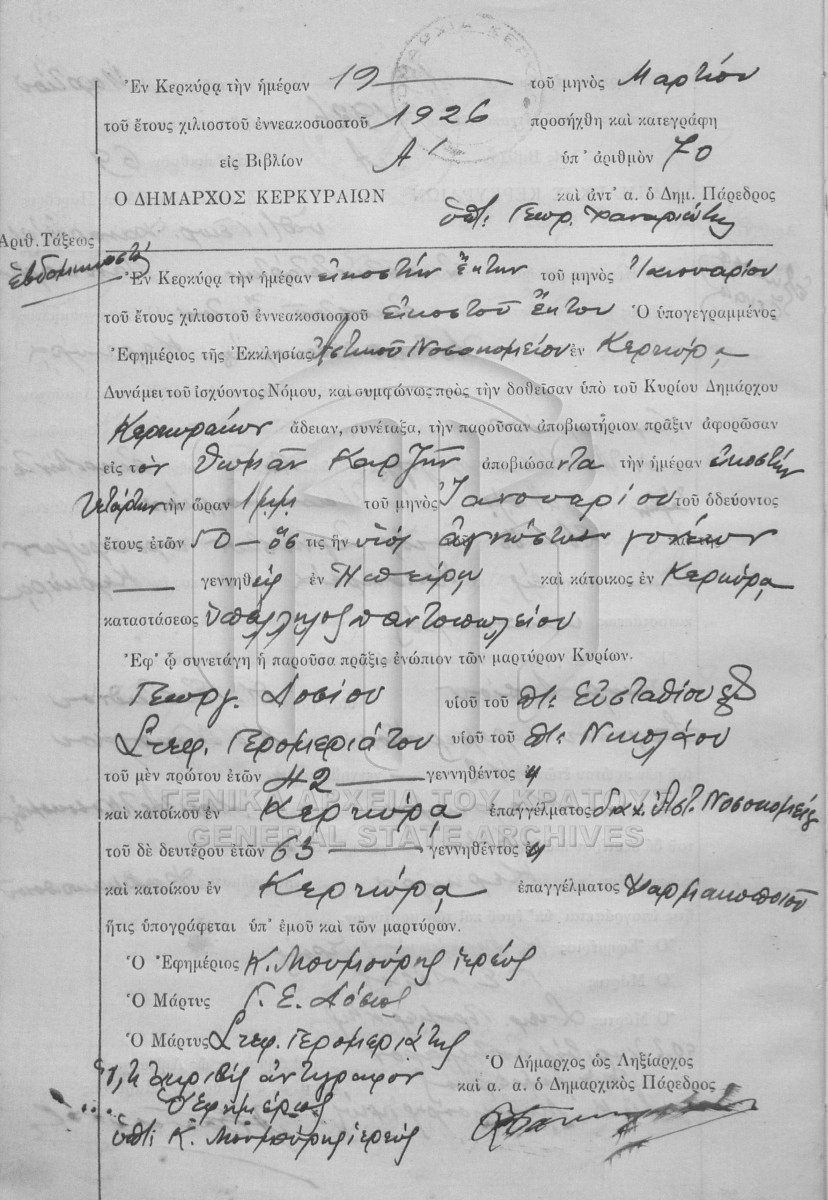 Ἐν Κερκύρᾳ τὴν ἡμέραν 19 τοῦ μηνὸς Μαρτίου
τοῦ ἔτους χιλιοστοῦ ἐννεακοσιοστοῦ 1926 προσήχθη καὶ κατεγράφη
εἰς Βιβλίον Α' ὑπ' ἀριθμὸν 70
Ο ΔΗΜΑΡΧΟΣ ΚΕΡΚΥΡΑΙΩΝ καὶ ἀντ' α. ὁ Δημ. Πάρεδρος
Γεωρ.
Ἀριθ. Τάξεως
ἑβδομηκοστή
Ἐν Κερκύρᾳ τὴν ἡμέραν εἰκοστήν ἕκτην τοῦ μηνὸς Ἰανουαρίου
τοῦ ἔτους χιλιοστοῦ ἐννεακοσιοστοῦ εἰκοστοῦ ἕκτου Ὁ ὑπογεγραμμένος
Ἐφημέριος τῆς Ἐκκλησίας Ἀστικοῦ Νοσοκομείου ἐν Κερκύρᾳ
Δυνάμει τοῦ ἰσχύοντος Νόμου, καὶ συμφώνως πρὸς τὴν δοθεῖσαν ὑπὸ τοῦ Κυρίου Δημάρχου
Κερκυραίων ἄδειαν, συνέταξα, τὴν παροῦσαν ἀποβιωτήριον πρᾶξιν ἀφορῶσαν
εἰς τὸν Θωμᾶν Καρζῆν ἀποβιώσαντα τὴν ἡμέραν εἰκοστήν
τετάρτην τὴν ὥραν 1 μμ τοῦ μηνὸς Ἰανουαρίου τοῦ ὁδεύοντος
ἔτους ἐτῶν 50 — ὅς τις ἦν υἱός ἀγνώστων γονέων
γεννηθείς ἐν Ἠπείρῳ καὶ κάτοικος ἐν Κερκύρᾳ
καταστάσεως ὑπάλληλος παντοπωλείου
Ἐφ' ᾧ συνετάγη ἡ παροῦσα πρᾶξις ἐνώπιον τῶν μαρτύρων Κυρίων.
Γεωργ. Δοσίου υἱοῦ τοῦ πτ: Εὐσταθίου
Στεφ. Γερομεριάτου υἱοῦ τοῦ πτ: Νικολάου
τοῦ μὲν πρώτου ἐτῶν 42 γεννηθέντος
καὶ κατοίκου ἐν Κερκύρᾳ ἐπαγγέλματος Ἀστ. Νοσοκομείου
τοῦ δὲ δευτέρου ἐτῶν 63 γεννηθέντος
καὶ κατοίκου ἐν Κερκύρᾳ ἐπαγγέλματος Φαρμακοποιοῦ
ἥτις ὑπογράφεται ὑπ' ἐμοῦ καὶ τῶν μαρτύρων.
Ὁ Ἐφημέριος Κ. Μπουμπούρης ἱερεύς
Ὁ Μάρτυς Γ. Ε. Δόσιος
Ὁ Μάρτυς Στεφ. Γερομεριάτης
Ὁ Δήμαρχος ὡς Ληξίαρχος
Ὅτι ἀκριβές ἀντίγραφον
καὶ α. α. ὁ Δημαρχικὸς Πάρεδρος
Ὁ Ἐφημέριος
Κ. Μπουμπούρης ἱερεύς
ΓΕΝΙΚΑ ΑΡΧΕΙΑ ΤΟΥ ΚΡΑΤΟΥΣ
GENERAL STATE ARCHIVES